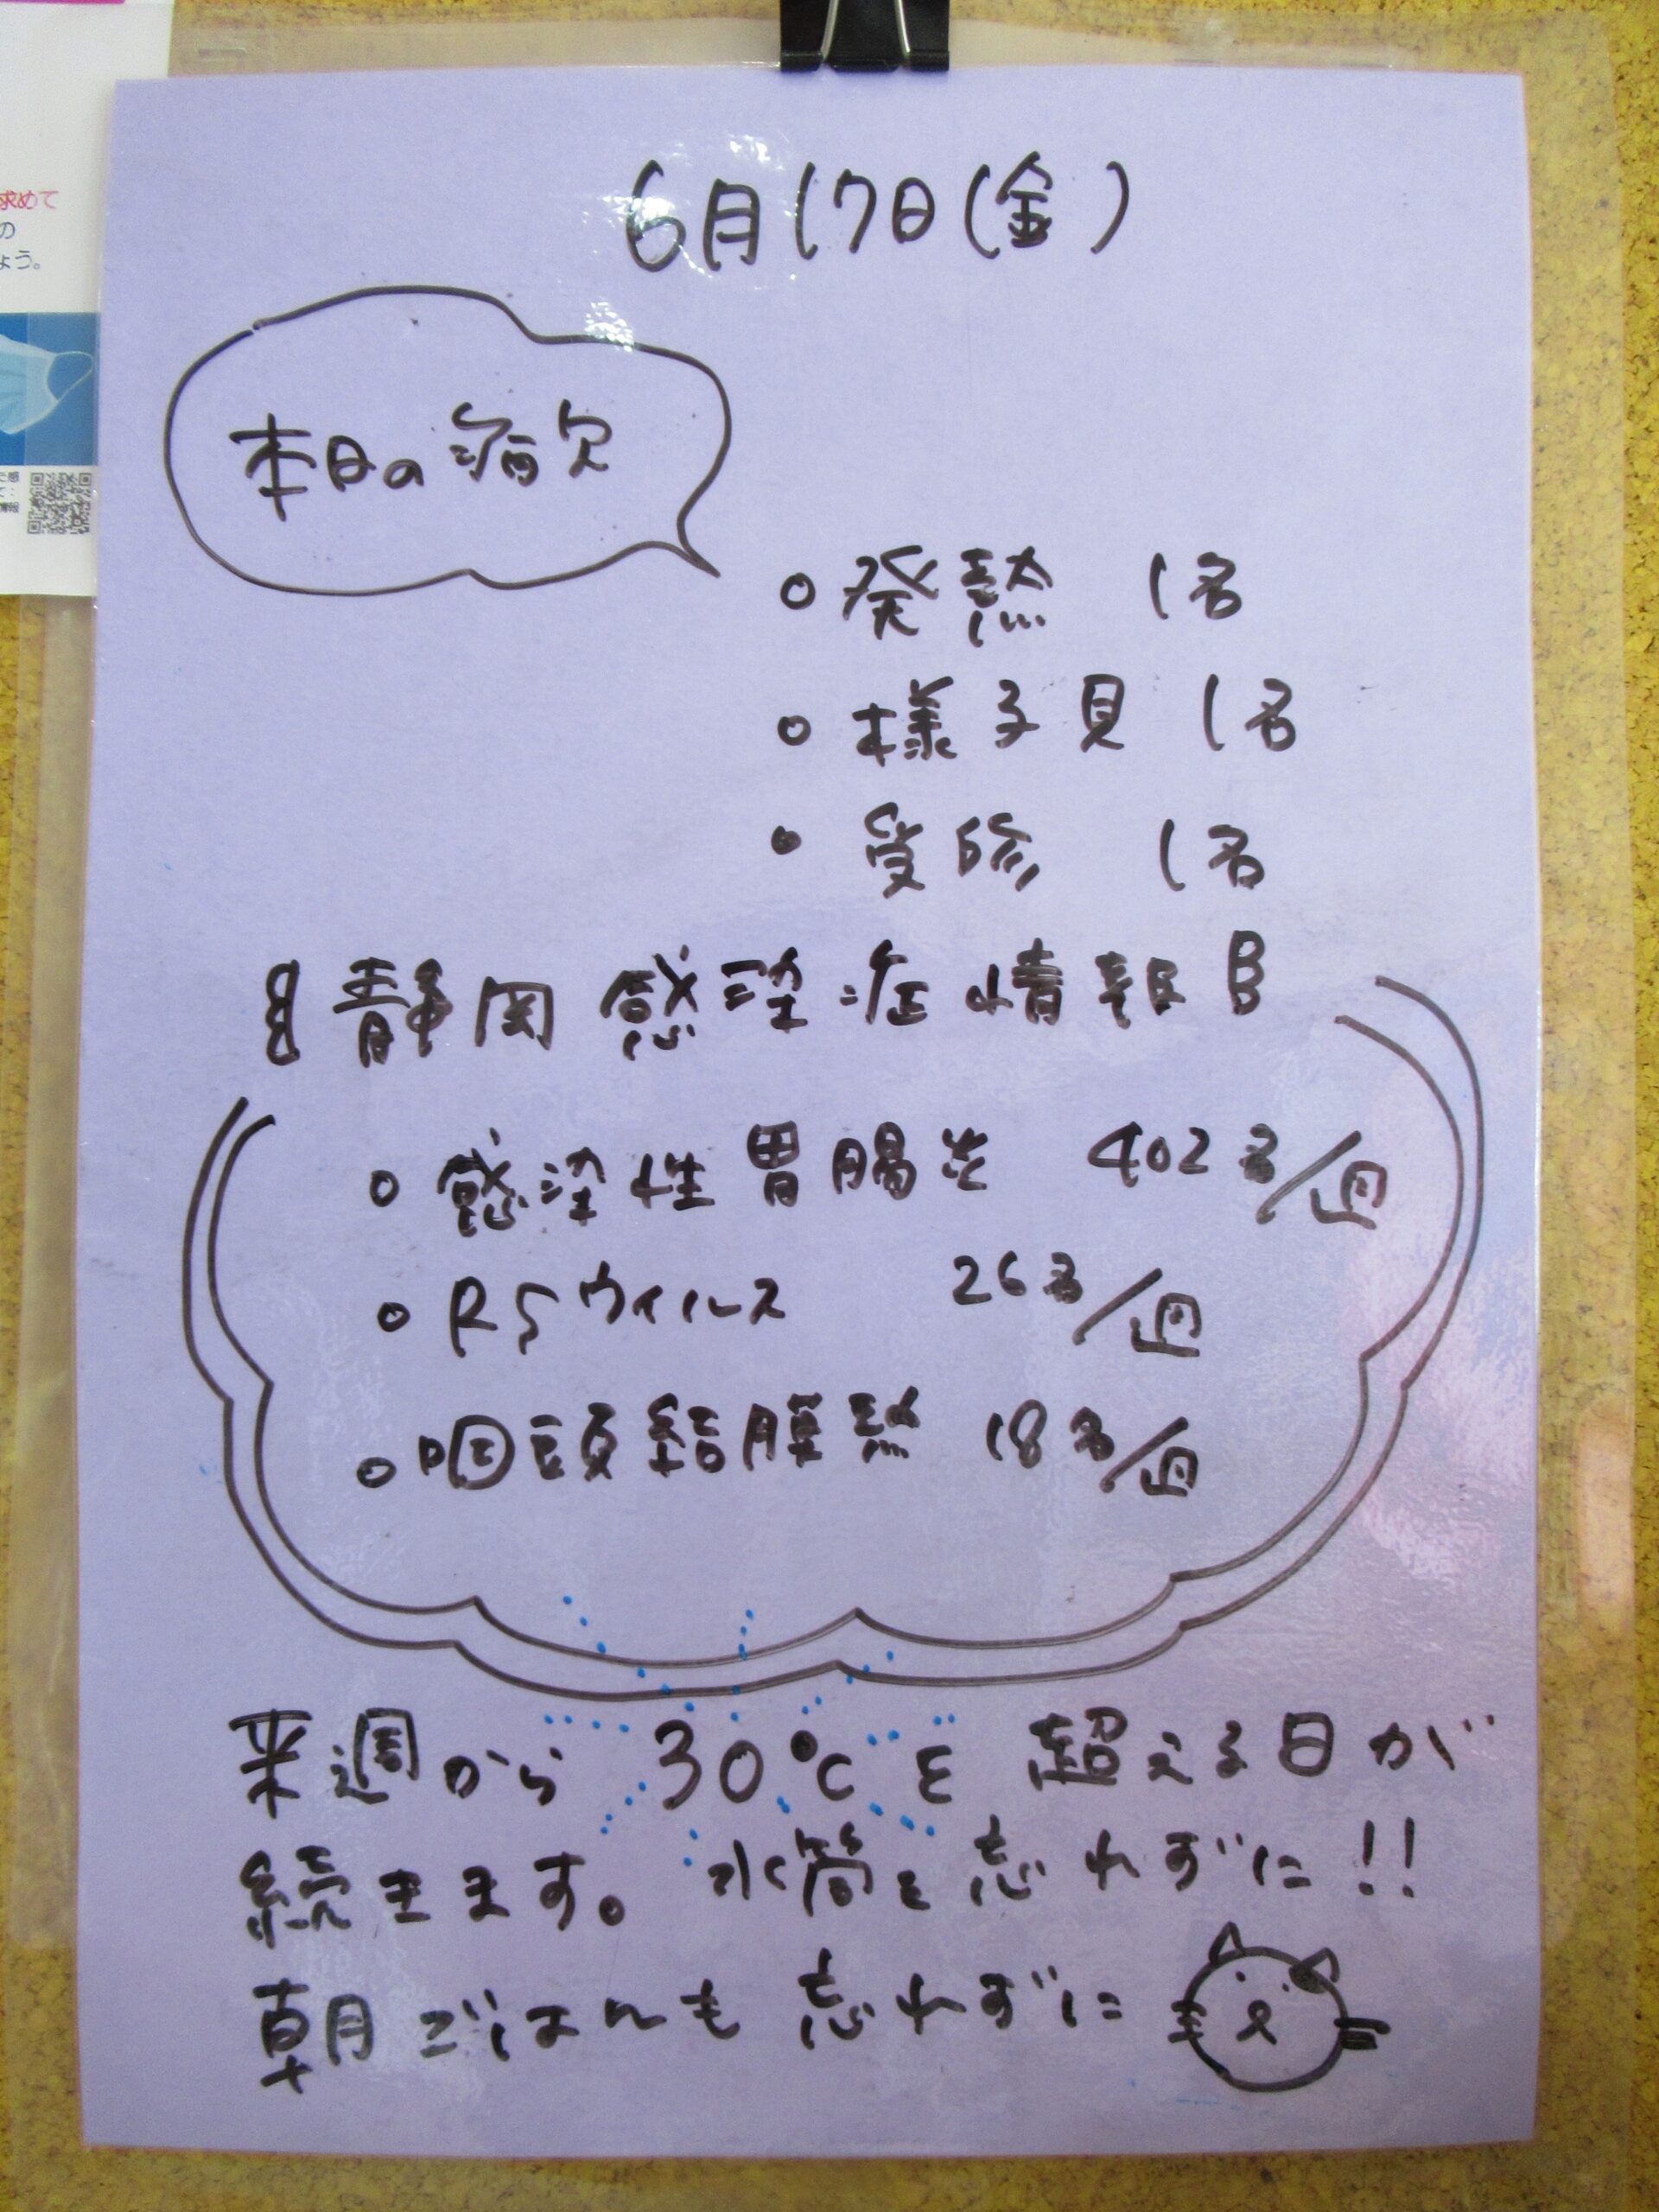 求めて
の
ょう。
6月17日(金)
本日の病欠
○発熱 1名
○様子見 1名
○受診 1名
静岡感染症情報
○感染性胃腸炎 402名/週
○RSウィルス 26名/週
○咽頭結膜熱 18名/週
来週から30℃を超える日が
続きます。水筒を忘れずに!!
朝ごはんも忘れずに